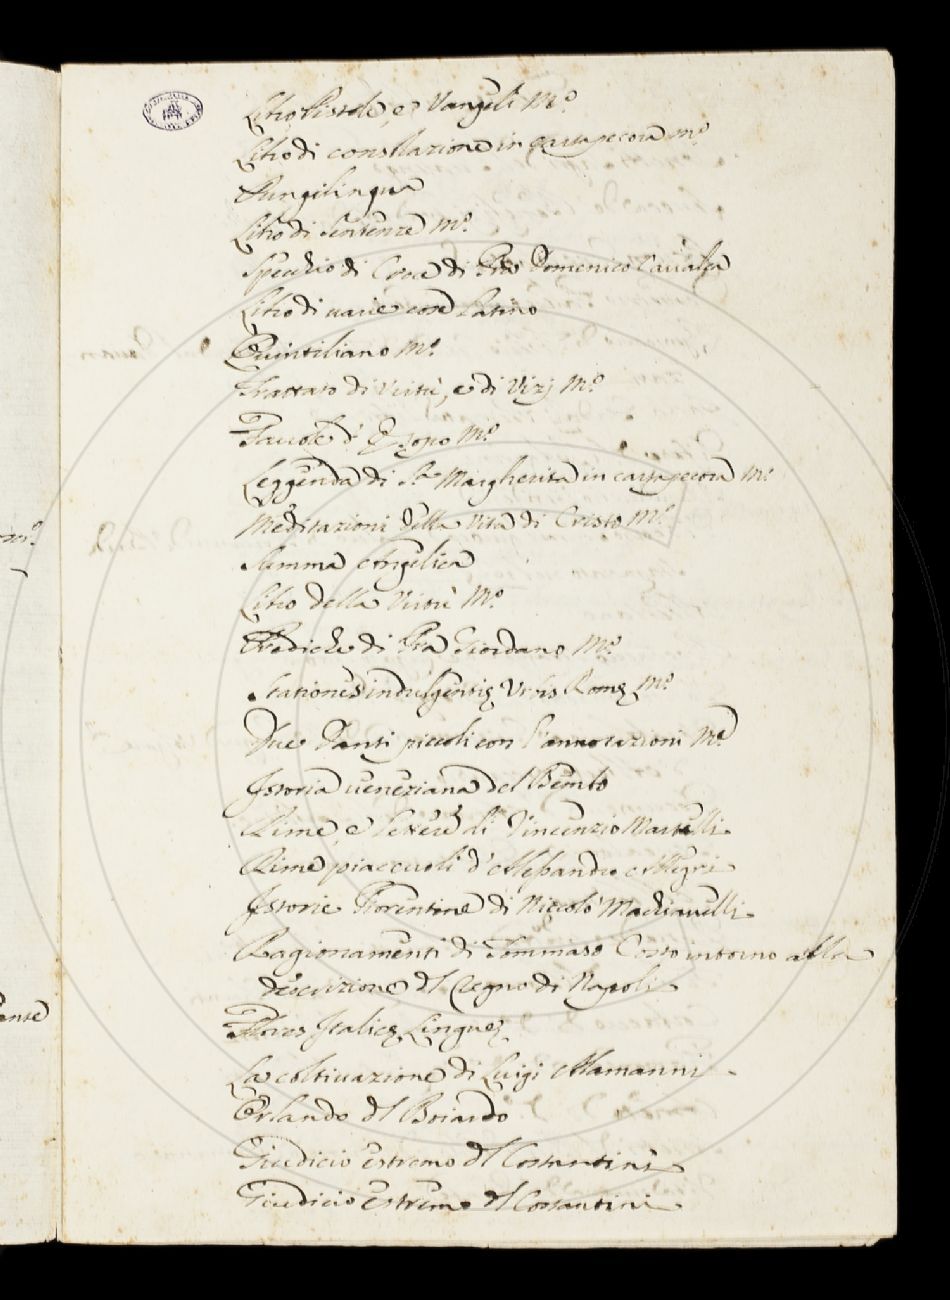 Libro Pistole, e Vangeli M.º
Libro di consolazione in cartapecora M.º
Pungilingua
Libro di Sentenze M.º
Specchio di Croce di Fra Domenico Cavalca
Libro di varie cose Latino
Quintiliano M.º
Trattato di Virtù, e di Vizj M.º
Favole d'Esopo M.º
Leggenda di S.ª Margherita in cartapecora M.º
Meditazioni della Vita di Cristo M.º
Summa Angelica
Libro della Virtù M.º
Prediche di Fra Giordano M.º
Stationes indulgentię Urbis Romę M.º
Due Danti piccoli con l'annotazioni M.º
Istoria veneziana del Bembo
Rime, e lettere di Vincenzio Martelli
Rime piacevoli d'Alessandro Allegri
Istorie Fiorentine di Niccolò Machiavelli
Ragionamenti di Tommaso Costo intorno alla
descrizione del Regno di Napoli
Flores Italicę Linguę
La coltivazione di Luigi Alamanni
Orlando del Boiardo
Giudicio estremo del Costantini
Giudicio estremo del Costantini